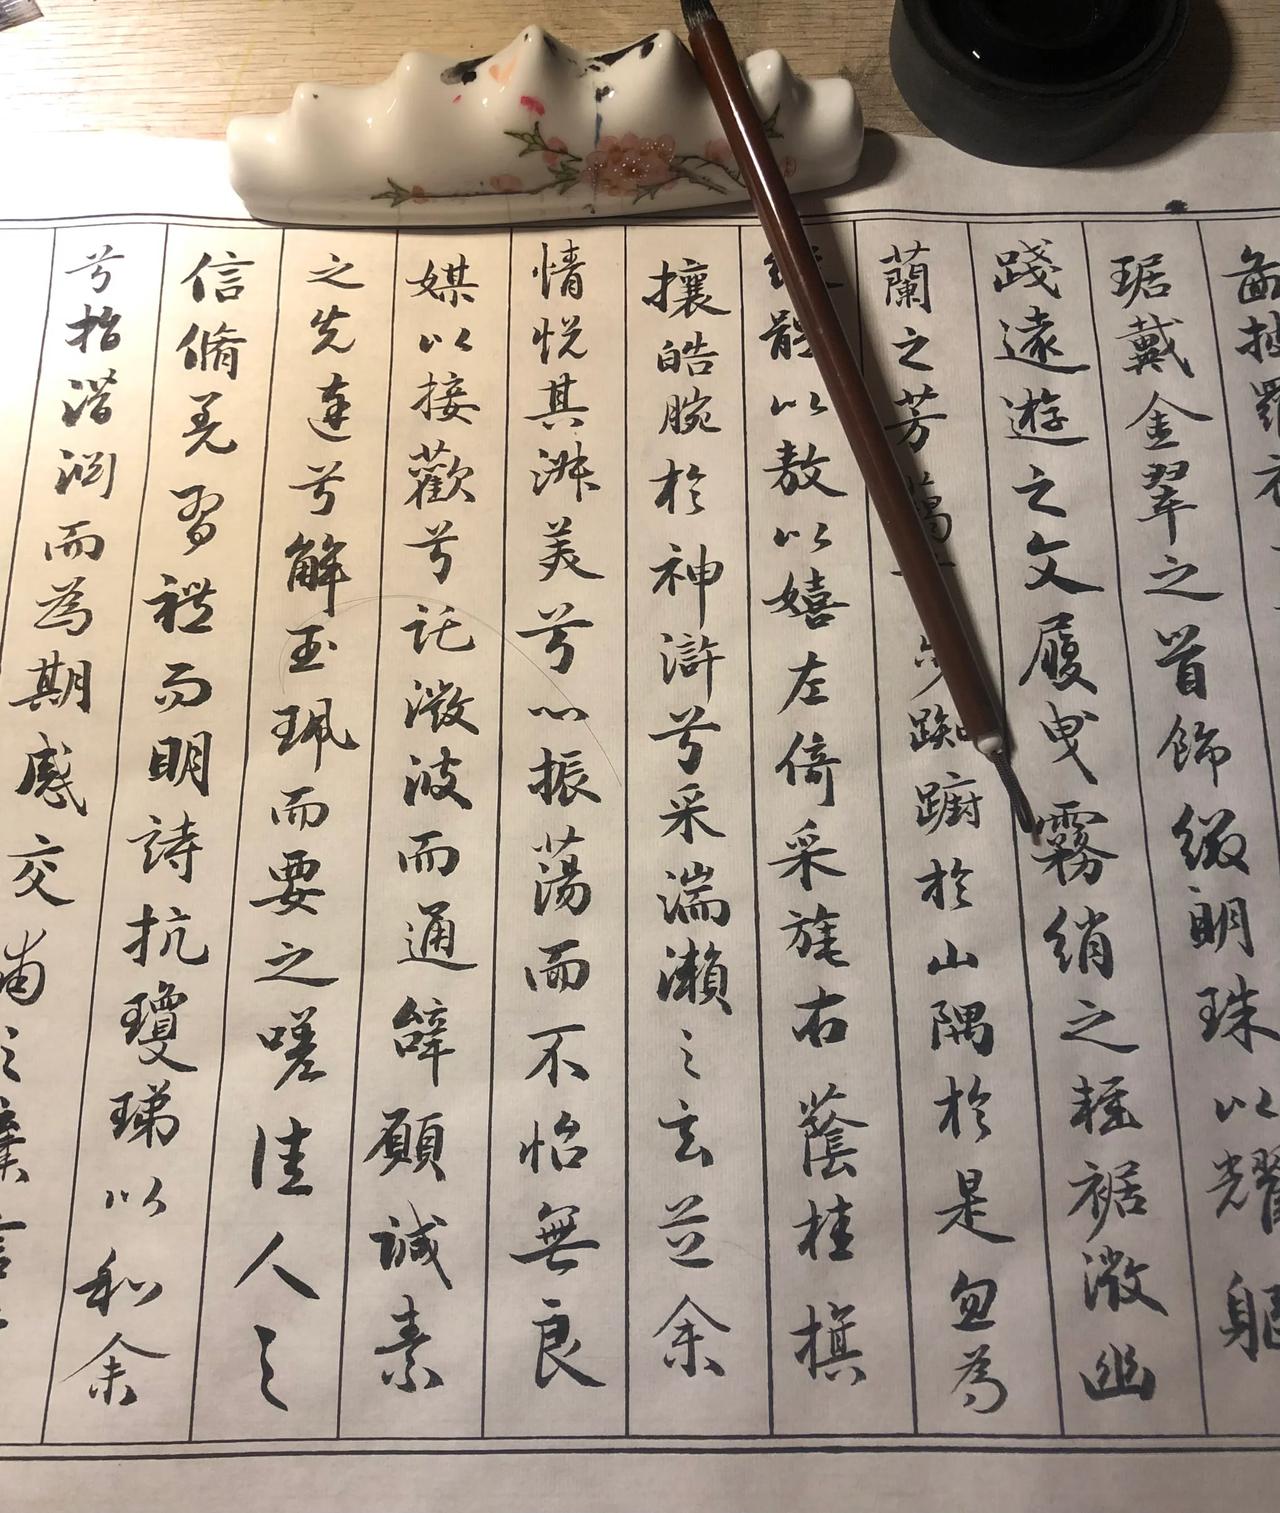 珠以耀軀
琚戴金翠之首飾綴明珠以耀軀
踐遠遊之文履曳霧綃之輕裾微幽
蘭之芳藹步踟躕於山隅於是忽焉
體以敖以嬉左倚采旄右蔭桂旗
攘皓腕於神滸兮采湍瀨之玄芝余
情悅其淑美兮心振蕩而不怡無良
媒以接歡兮託微波而通辭願誠素
之先達兮解玉珮而要之嗟佳人之
信脩羌習禮而明詩抗瓊珶以和余
兮指潛淵而為期感交甫之棄言